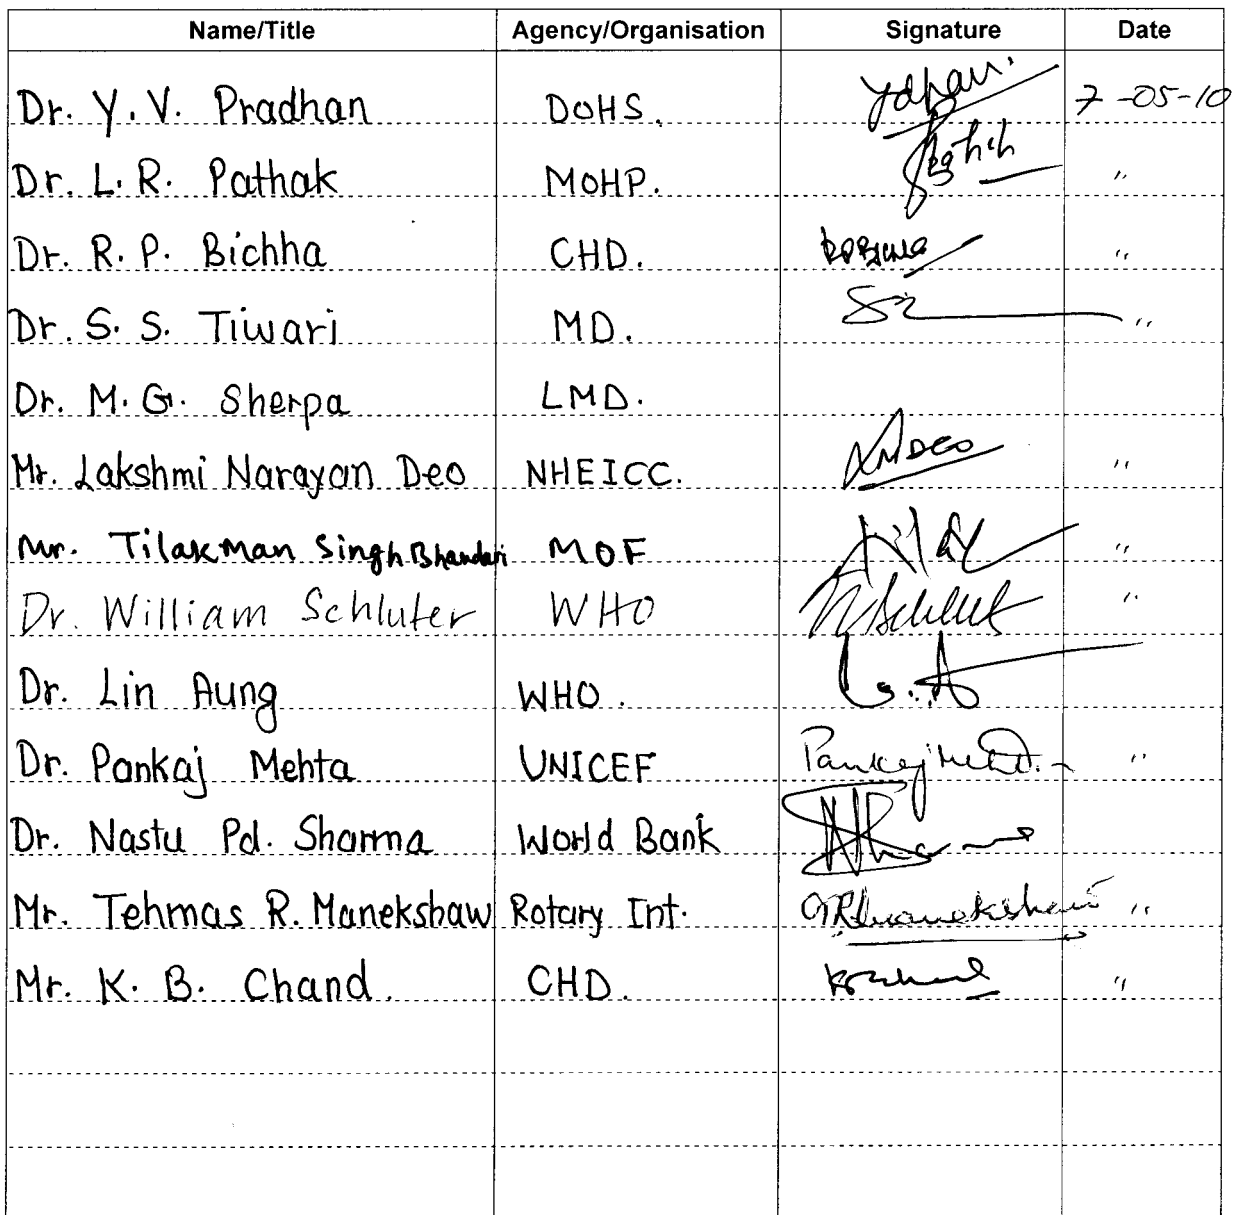 Name/Title Agency/Organisation Signature Date
Dr. Y.V. Pradhan DOHS. 7-05-10
Dr. L.R. Pathak MOHP. "
Dr. R.P. Bichha CHD. "
Dr. S.S. Tiwari MD. "
Dr. M.G. Sherpa LMD.
Mr. Lakshmi Narayan Deo NHEICC. LNDEO "
Mr. Tilakman Singh Bhandari MOF "
Dr. William Schluter WHO "
Dr. Lin Aung WHO.
Dr. Pankaj Mehta UNICEF Pankaj Mehta "
Dr. Nastu Pd. Sharma World Bank
Mr. Tehmas R. Manekshaw Rotary Int. TRManekshaw "
Mr. K. B. Chand. CHD. "